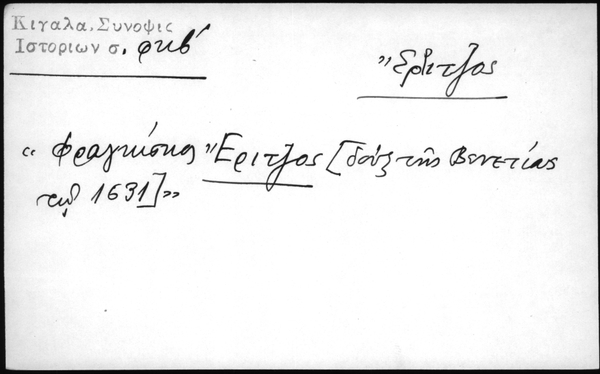 Κιγαλα, Συνοψις
Ιστοριων σ. φκβ'
Ἔριτζος
« Φραγκίσκος Ἔριτζος [δούξ τῆς Βενετίας
τῷ 1631]»